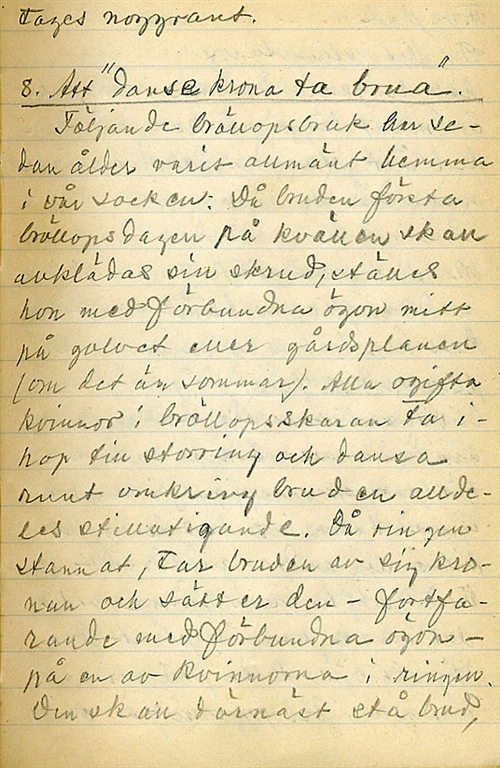 tages noggrant.
8. Att "danse krona ta brua".
Följande bröllopsbruk har se-
dan ålder varit allmänt hemma
i vår socken: Då bruden första
bröllopsdagen på kvällen skall
avklädas sin skrud, ställes
hon med förbundna ögon mitt
på golvet eller gårdsplanen
(om det är sommar). Alla ogifta
kvinnor i bröllopsskaran ta i-
hop till storring och dansa
runt omkring bruden allde-
les stillatigande. Då ringen
stannat, tar bruden av sig kro-
nan och sätter den - fortfa-
rande med förbundna ögon -
på en av kvinnorna i ringen.
Den skall därnäst stå brud,